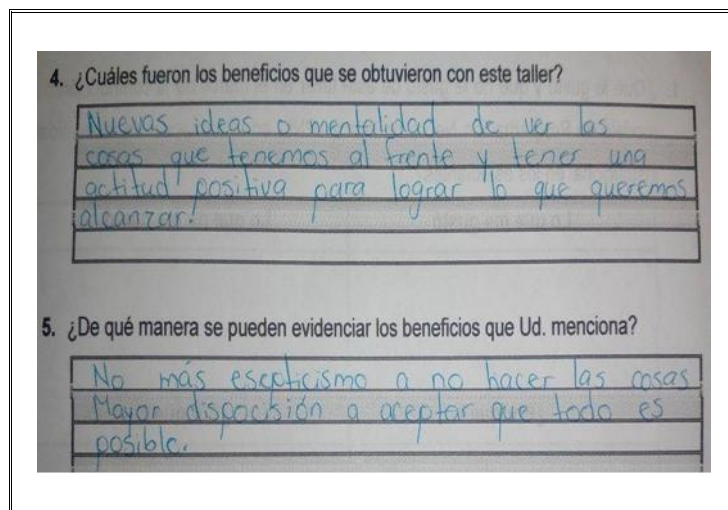 4. ¿Cuáles fueron los beneficios que se obtuvieron con este taller?
Nuevas ideas o mentalidad de ver las
cosas que tenemos al frente y tener una
actitud positiva para lograr lo que queremos
alcanzar!
5. ¿De qué manera se pueden evidenciar los beneficios que Ud. menciona?
No más escepticismo a no hacer las cosas
Mayor dispocisión a aceptar que todo es
posible.